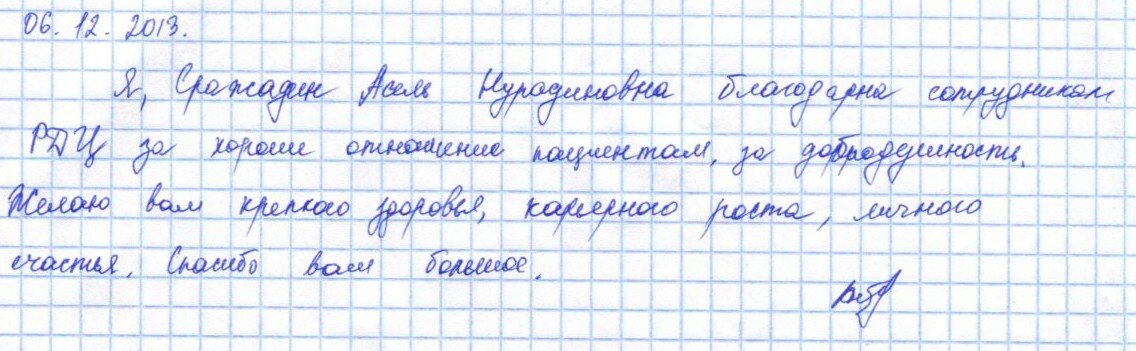 06. 12. 2013.
Я, Сражадин Асель Нурадиновна благодарна сотрудникам
РДЦ за хороше отношение пациентам, за добродушность.
Желаю вам крепкого здоровья, карьерного роста, личного
счастья. Спасибо вам большое.